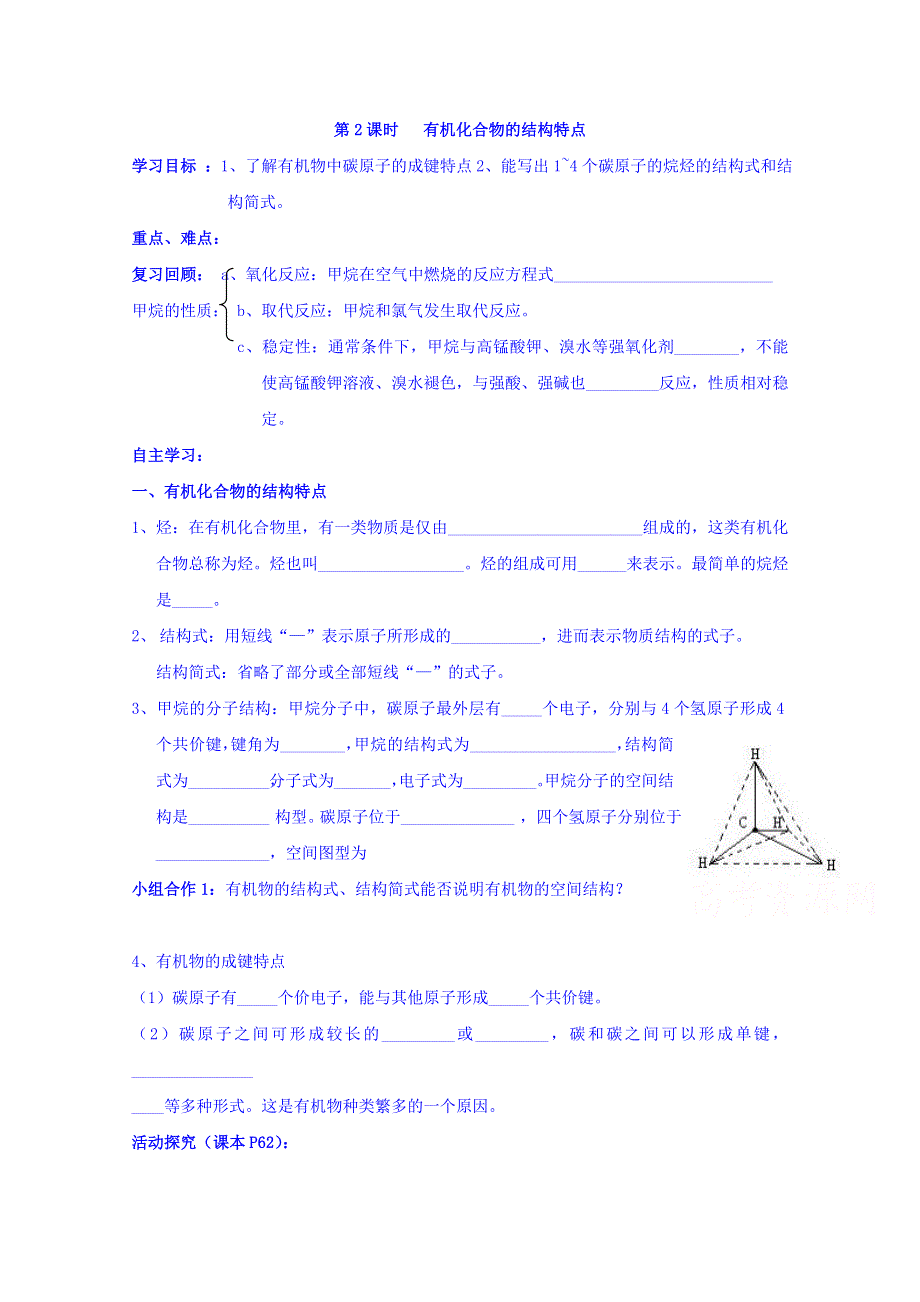 第2课时 有机化合物的结构特点
学习目标 ：1、了解有机物中碳原子的成键特点2、能写出1~4个碳原子的烷烃的结构式和结
构简式。
重点、难点：
复习回顾： a、氧化反应：甲烷在空气中燃烧的反应方程式___________________________
甲烷的性质： b、取代反应：甲烷和氯气发生取代反应。
c、稳定性：通常条件下，甲烷与高锰酸钾、溴水等强氧化剂________，不能
使高锰酸钾溶液、溴水褪色，与强酸、强碱也_________反应，性质相对稳
定。
自主学习：
一、有机化合物的结构特点
1、烃：在有机化合物里，有一类物质是仅由________________________组成的，这类有机化
合物总称为烃。烃也叫__________________。烃的组成可用______来表示。最简单的烷烃
是_____。
2、 结构式：用短线“—”表示原子所形成的___________，进而表示物质结构的式子。
结构简式：省略了部分或全部短线“—”的式子。
3、甲烷的分子结构：甲烷分子中，碳原子最外层有_____个电子，分别与4个氢原子形成4
个共价键，键角为________，甲烷的结构式为__________________，结构简
式为__________分子式为_______，电子式为_________。甲烷分子的空间结
构是__________ 构型。碳原子位于______________ ，四个氢原子分别位于
______________，空间图型为
H
C H
H H
高考资源网
小组合作1：有机物的结构式、结构简式能否说明有机物的空间结构？
4、有机物的成键特点
（1）碳原子有_____个价电子，能与其他原子形成_____个共价键。
（2）碳原子之间可形成较长的_________或_________，碳和碳之间可以形成单键，
_______________
____等多种形式。这是有机物种类繁多的一个原因。
活动探究（课本P62）：